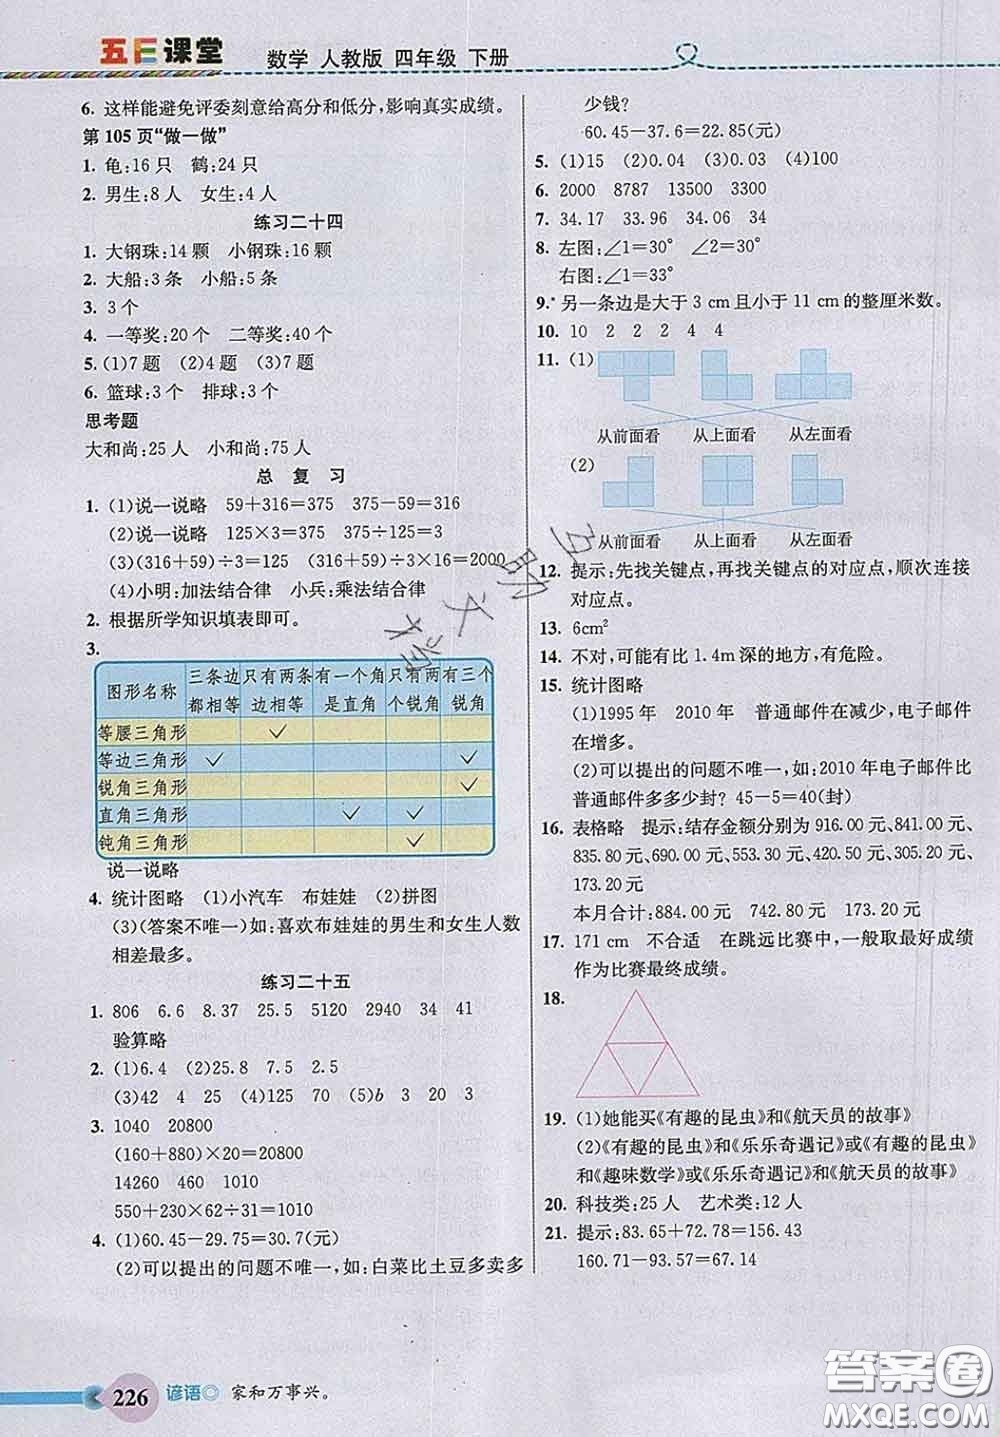 五E课堂 数学 人教版 四年级 下册
6. 这样能避免评委刻意给高分和低分,影响真实成绩。
第 105 页“做一做”
1. 龟:16 只 鹤:24 只
2. 男生:8 人 女生:4 人
练习二十四
1. 大钢珠:14 颗 小钢珠:16 颗
2. 大船:3 条 小船:5 条
3. 3 个
4. 一等奖:20 个 二等奖:40 个
5. (1)7 题 (2)4 题 (3)7 题
6. 篮球:3 个 排球:3 个
思考题
大和尚:25 人 小和尚:75 人
总 复 习
1. (1)说一说略 59+316=375 375-59=316
(2)说一说略 125×3=375 375÷125=3
(3)(316+59)÷3=125 (316+59)÷3×16=2000
(4)小明:加法结合律 小兵:乘法结合律
2. 根据所学知识填表即可。
3.
图形名称 三条边都相等 只有两条边相等 有一个角是直角 只有两个锐角 有三个锐角
等腰三角形 ✓
等边三角形 ✓ ✓
锐角三角形 ✓
直角三角形 ✓ ✓
钝角三角形 ✓
说一说略
4. 统计图略 (1)小汽车 布娃娃 (2)拼图
(3)(答案不唯一)如:喜欢布娃娃的男生和女生人数
相差最多。
练习二十五
1. 806 6.6 8.37 25.5 5120 2940 34 41
验算略
2. (1)6.4 (2)25.8 7.5 2.5
(3)42 4 25 (4)125 70 (5)b 3 20 3
3. 1040 20800
(160+880)×20=20800
14260 460 1010
550+230×62÷31=1010
4. (1)60.45-29.75=30.7(元)
(2)可以提出的问题不唯一,如:白菜比土豆多卖多
少钱?
60.45-37.6=22.85(元)
5. (1)15 (2)0.04 (3)0.03 (4)100
6. 2000 8787 13500 3300
7. 34.17 33.96 34.06 34
8. 左图:∠1=30° ∠2=30°
右图:∠1=33°
9.* 另一条边是大于 3 cm 且小于 11 cm 的整厘米数。
10. 10 2 2 2 4 4
11. (1)
从前面看 从上面看 从左面看
(2)
从前面看 从上面看 从左面看
12. 提示:先找关键点,再找关键点的对应点,顺次连接
对应点。
13. 6cm²
14. 不对,可能有比 1.4m 深的地方,有危险。
15. 统计图略
(1)1995 年 2010 年 普通邮件在减少,电子邮件
在增多。
(2)可以提出的问题不唯一,如:2010 年电子邮件比
普通邮件多多少封? 45-5=40(封)
16. 表格略 提示:结存金额分别为 916.00 元、841.00 元、
835.80 元、690.00 元、553.30 元、420.50 元、305.20 元、
173.20 元
本月合计:884.00 元 742.80 元 173.20 元
17. 171 cm 不合适 在跳远比赛中,一般取最好成绩
作为比赛最终成绩。
18.
19. (1)她能买《有趣的昆虫》和《航天员的故事》
(2)《有趣的昆虫》和《乐乐奇遇记》或《有趣的昆虫》
和《趣味数学》或《乐乐奇遇记》和《航天员的故事》
20. 科技类:25 人 艺术类:12 人
21. 提示:83.65+72.78=156.43
160.71-93.57=67.14
226 谚语◎ 家和万事兴。
答案圈
MXQE.COM